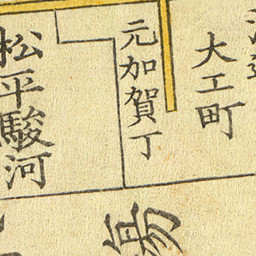 大工町
元加賀丁
松平駿河